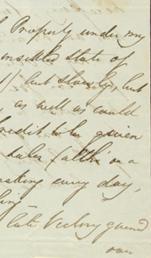 Property under my
unsettled state of
but slowly, but
as well as could
credit to be given
sales in a
making every day,
late Victory gained
over